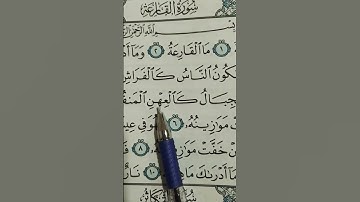 سُورَةُ القَارِعَةِ
بِسْمِ اللَّهِ الرَّحْمَٰنِ
١ مَا الْقَارِعَةُ ٢ وَمَا
يَكُونُ النَّاسُ كَالْفَرَاشِ
الْجِبَالُ كَالْعِهْنِ
مَوَازِينُهُ ٦ فَهُوَ فِي
خَفَّتْ ٨
أَدْرَىٰكَ ١٠ نَارٌ